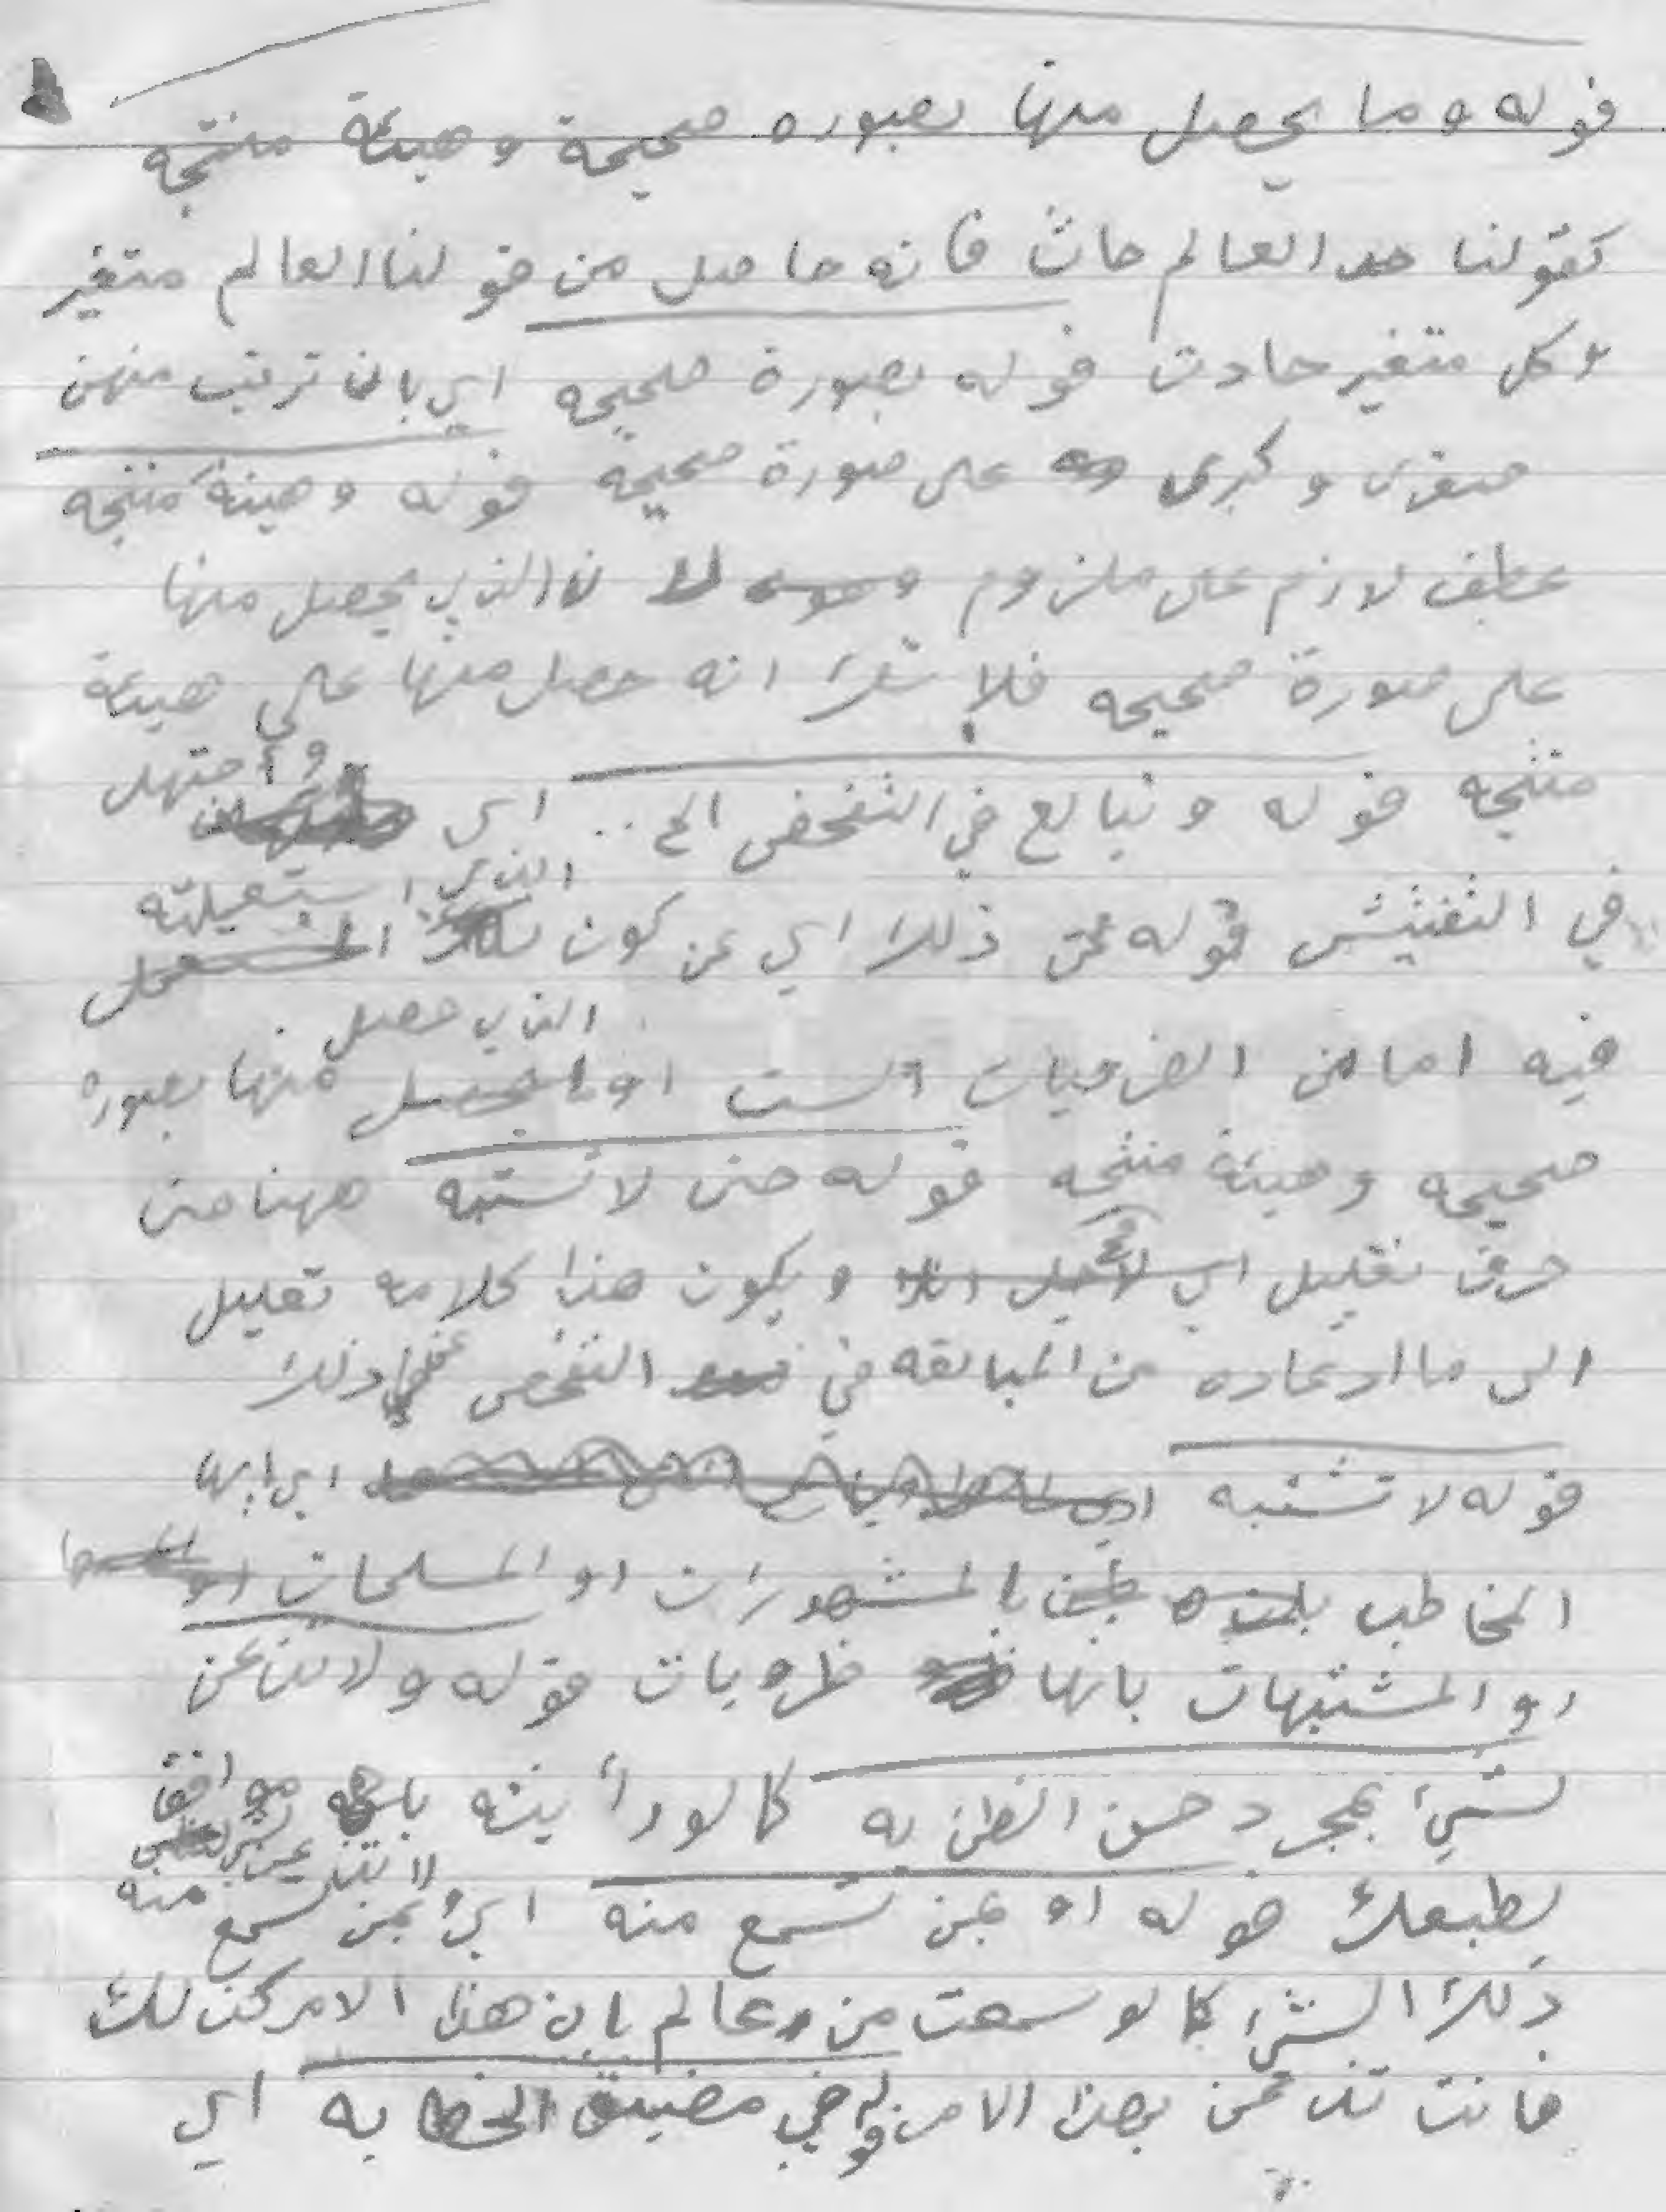 قوله وما يحصل منها بصوره صحيحة وهيئة منتجه
كقولنا العالم حاث فانه حاصل من قولنا العالم متغير
وكل متغير حادث قوله بصورة صحيحه اي بان ترتب منهن
صغرى وكبرى على صورة صحيحه قوله وهيئة منتجه
عطف لازم على ملزوم لان الذي يحصل منها
على صورة صحيحه فلا انه حصل منها على هيئة
منتجه قوله ونبالغ في التفحص الخ .. اي واجتهد
في التفتيش قوله عن ذلك اي عن كون الذي استعملته
فيه اما من الضروريات الست او الذي حصل منها بصوره
صحيحه وهيئة منتجه قوله حتى لا تشتبه ههنا حتى
حرف تعليل ويكون هذا كلامه تعليل
الى ما ادعاه من المبالغه في التفحص عن ذلك
قوله لا تشتبه اي ايها
المخاطب المشهورات او المسلمات
او المشتبهات بانها قوله ولا تذعن
لشيئ بمجرد حسن الظن به كما لو رأيته موافقا
لطبعك قوله او بمن تسمع منه اي لا تذعن بمن تسمع منه
ذلك الشيئ كما لو سمعت من عالم بان هذا الامر كذلك
فانت تذعن بهذا الامر قوله في مضيق الخطابه اي